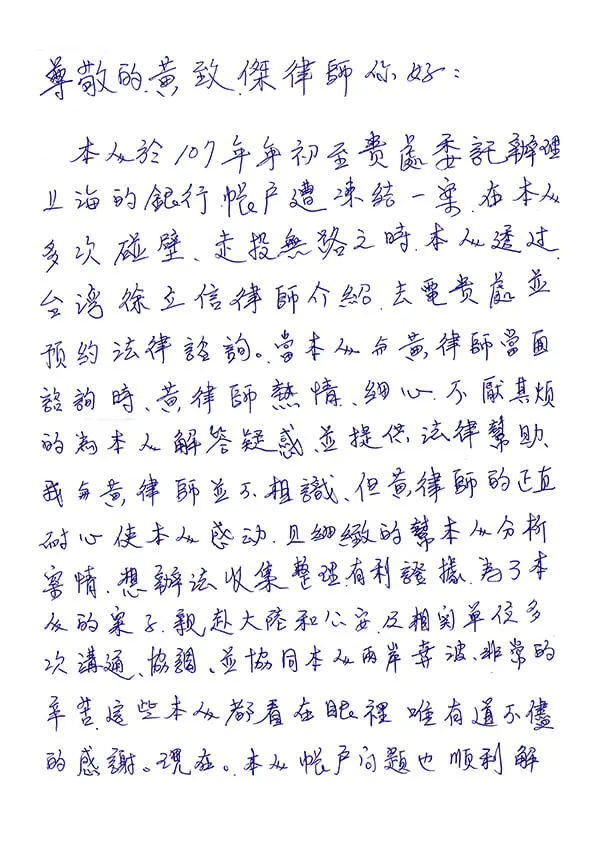 尊敬的黃致傑律師你好：
本人於107年年初至貴處委託辦理
上海的銀行帳戶遭凍結一案，在本人
多次碰壁、走投無路之時，本人透过
台湾徐立信律師介紹，去電貴處並
預約法律諮詢。當本人与黃律師當面
諮詢時、黃律師熱情、細心、不厭其煩
的為本人解答疑惑，並提供法律幫助、
我与黃律師並不相識、但黃律師的正直
耐心使本人感动，且細緻的幫本人分析
案情，想辦法收集整理有利證據，為了本
人的案子，親赴大陸和公安及相関單位多
次溝通、協調、並協同本人兩岸奔波、非常的
辛苦，這些本人都看在眼裡，唯有道不儘
的感謝。現在。本人帳戶问題也順利解